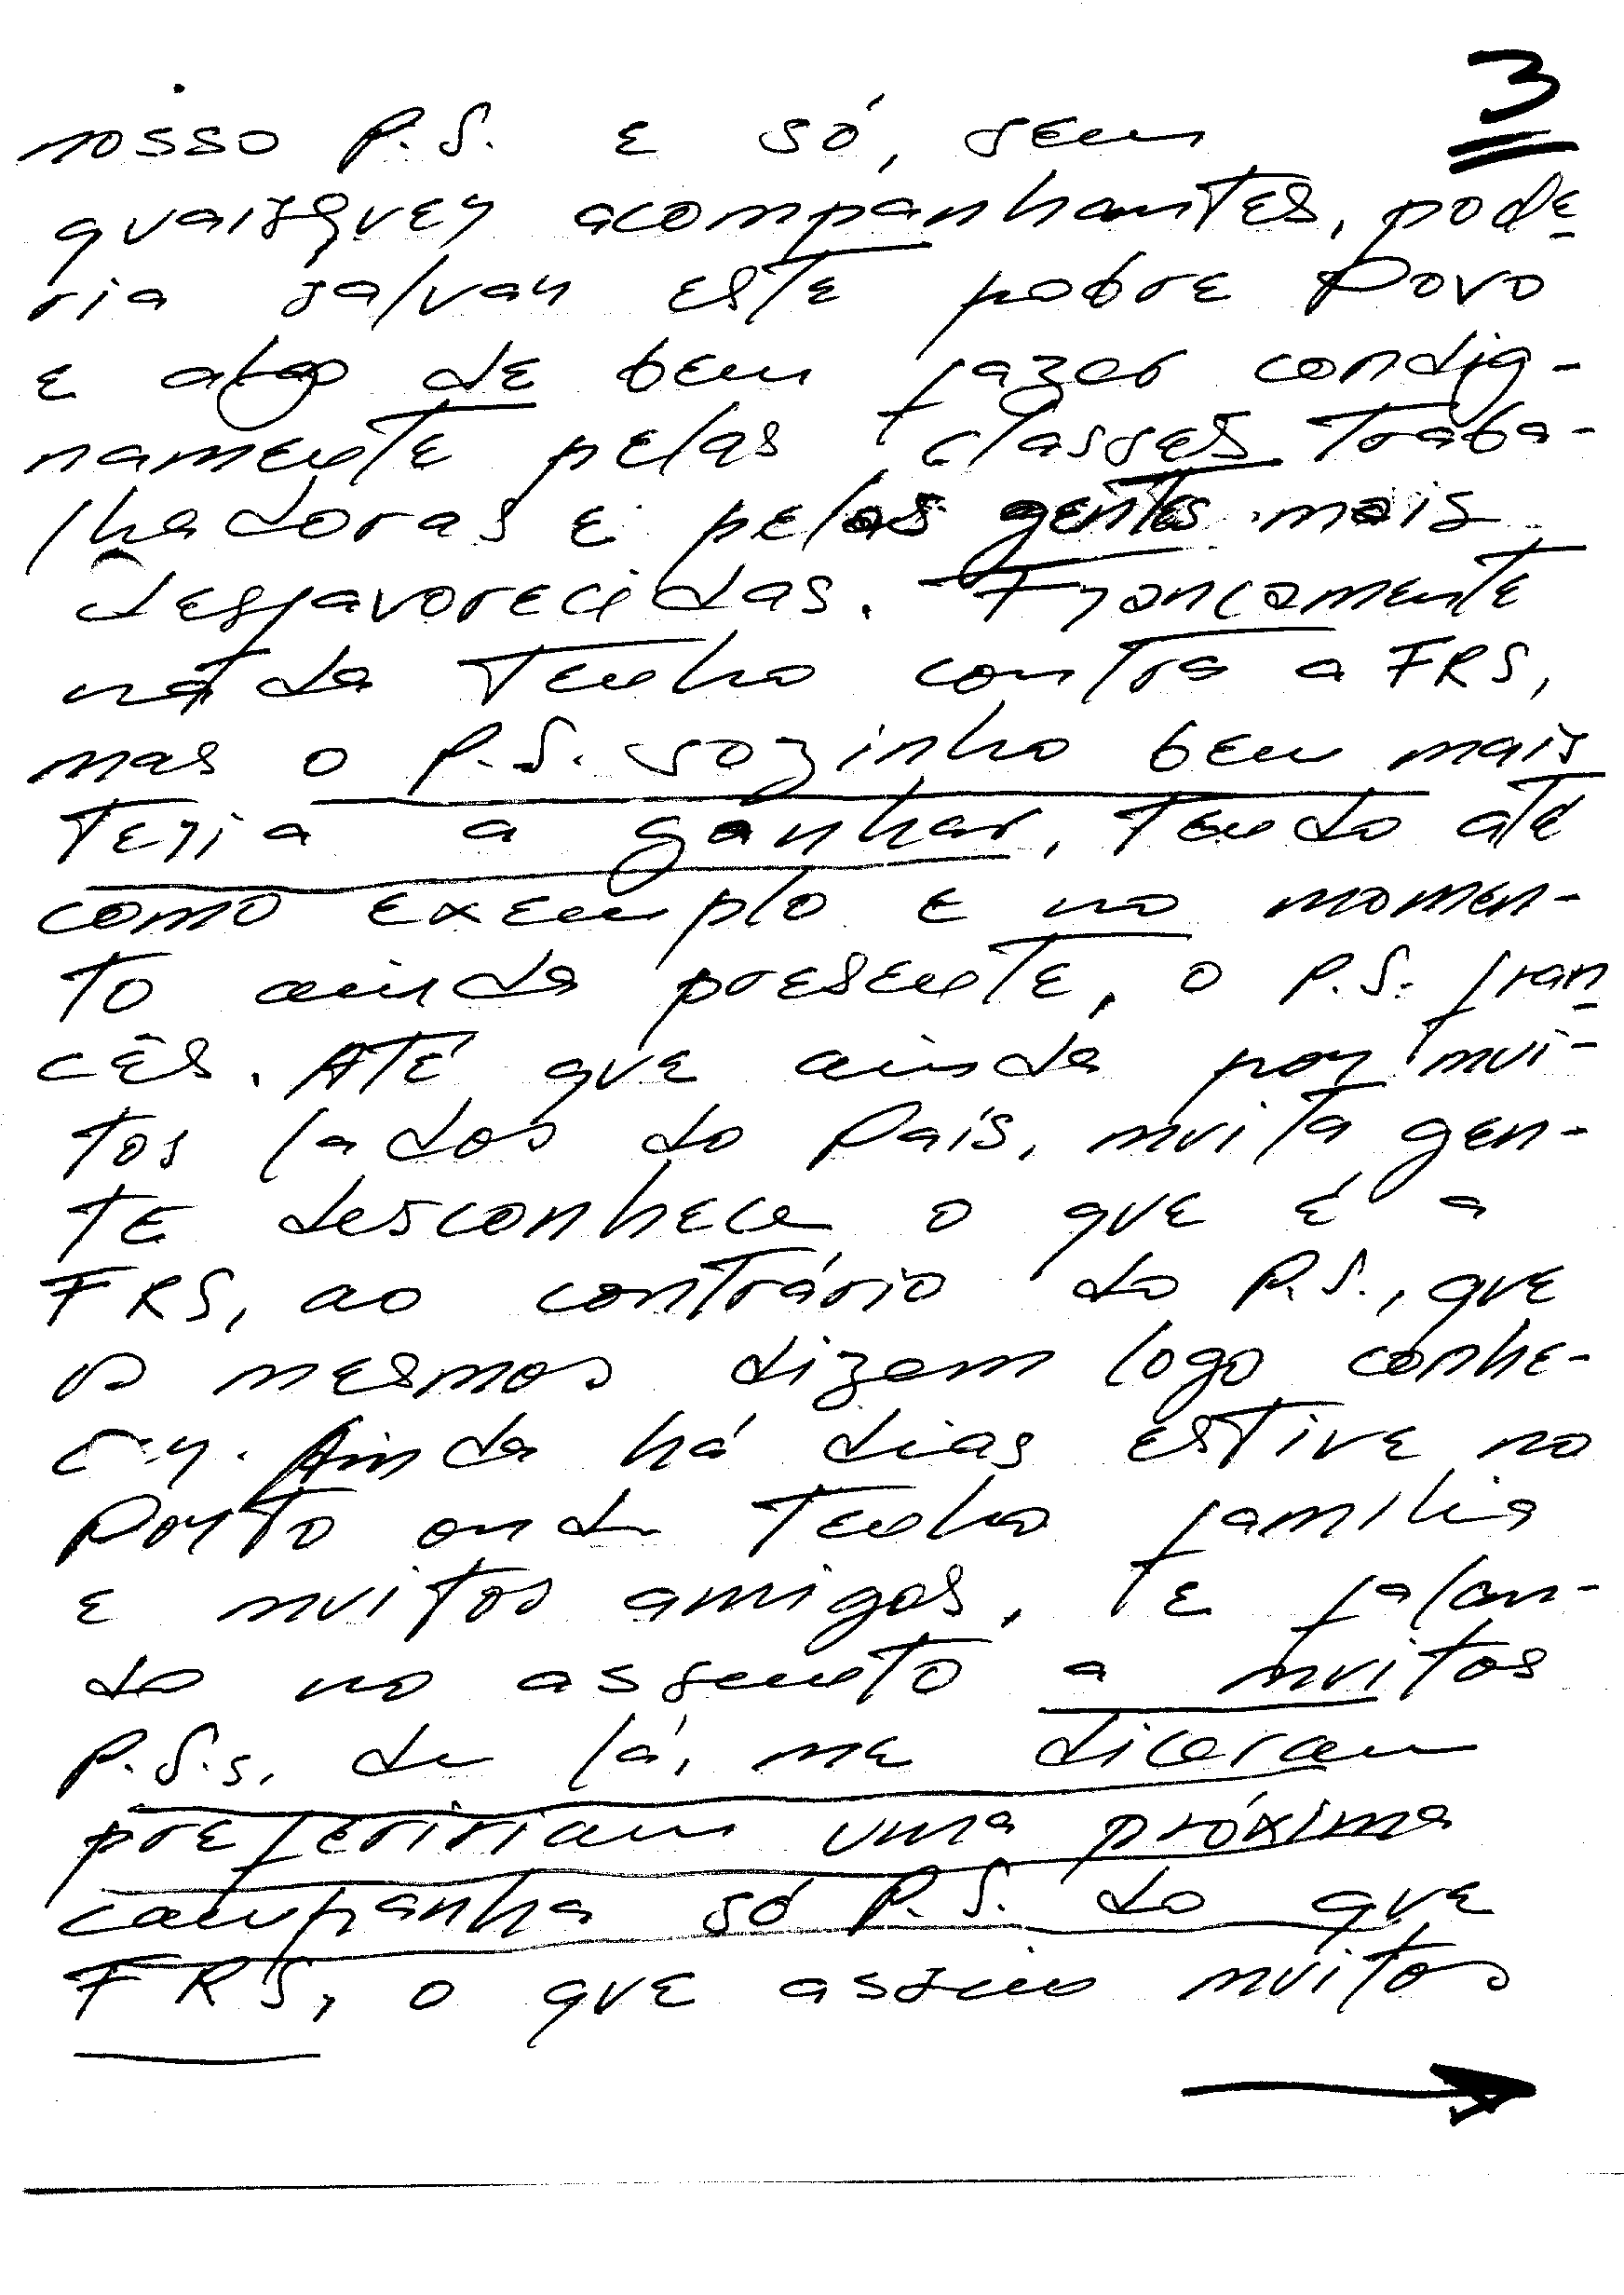 3
nosso P.S. e só, sem
quaisquer acompanhantes, pode-
ria salvar este pobre Povo
e algo de bem fazer condig-
namente pelas classes traba-
lhadoras e pelas gentes mais
desfavorecidas. Francamente
nada tenho contra a FRS,
mas o P.S. sozinho bem mais
teria a ganhar, tendo até
como exemplo e no momen-
to ainda presente, o P.S. fran-
cês. Até que ainda por mui-
tos lados do País, muita gen-
te desconhece o que é a
FRS, ao contrário do P.S., que
os mesmos dizem logo conhe-
cer. Ainda há dias estive no
Porto onde tenho família
e muitos amigos, te falan-
do no assunto a muitos
P.S.s. de lá, me diceram
prefeririam uma próxima
campanha só P.S. do que
FRS, o que assim muitos